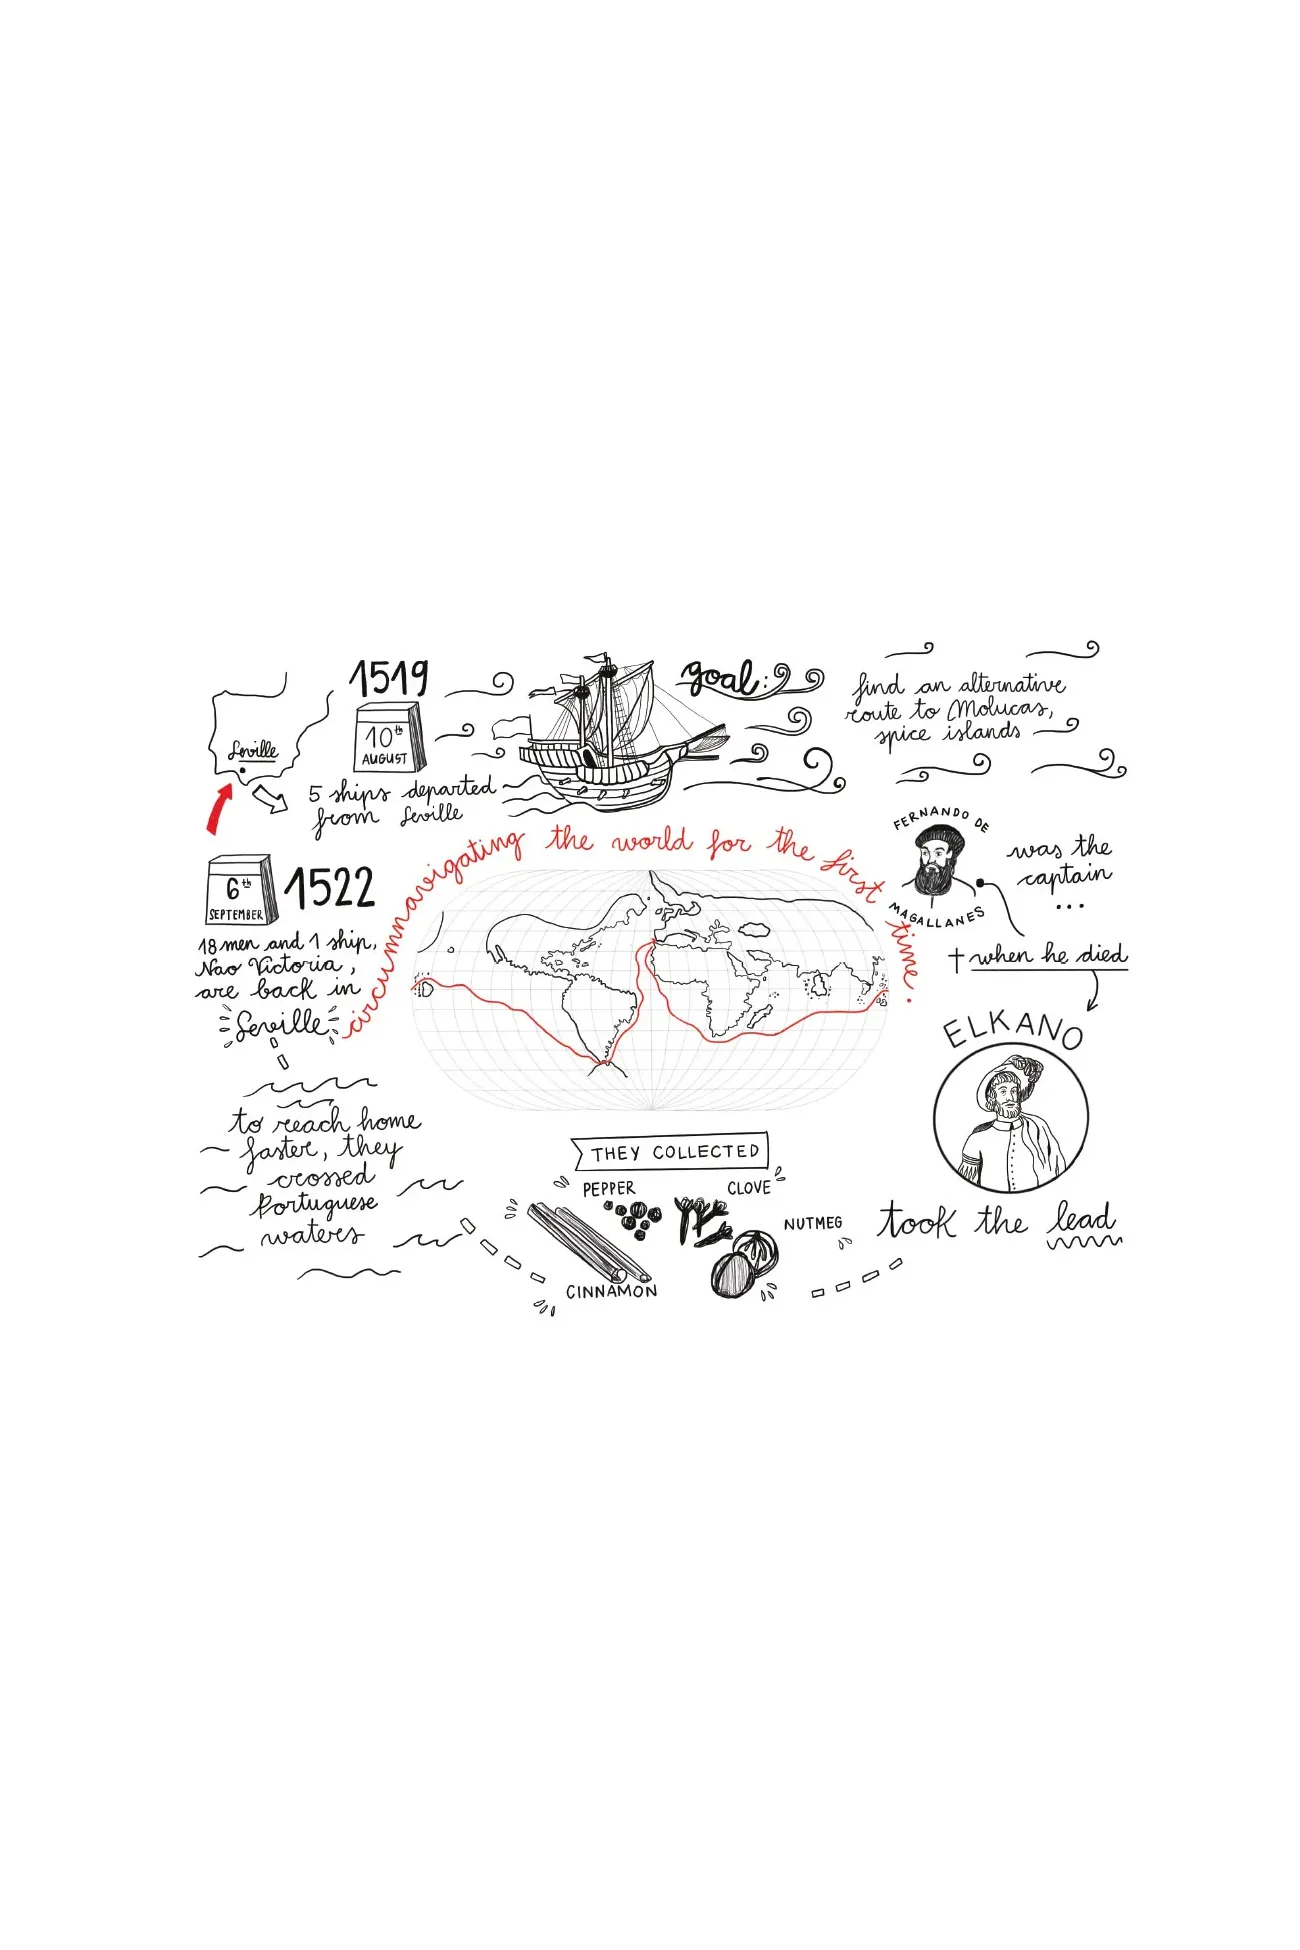 1519
10th
AUGUST
Seville
5 ships departed
from Seville
goal:
find an alternative
route to Molucas,
spice islands
FERNANDO DE
MAGALLANES
was the
captain
...
when he died
ELKANO
took the lead
THEY COLLECTED
PEPPER
CLOVE
NUTMEG
CINNAMON
to reach home
faster, they
crossed
Portuguese
waters
6th
SEPTEMBER
1522
18 men and 1 ship,
Nao Victoria,
are back in
Seville
circumnavigating the world for the first time.